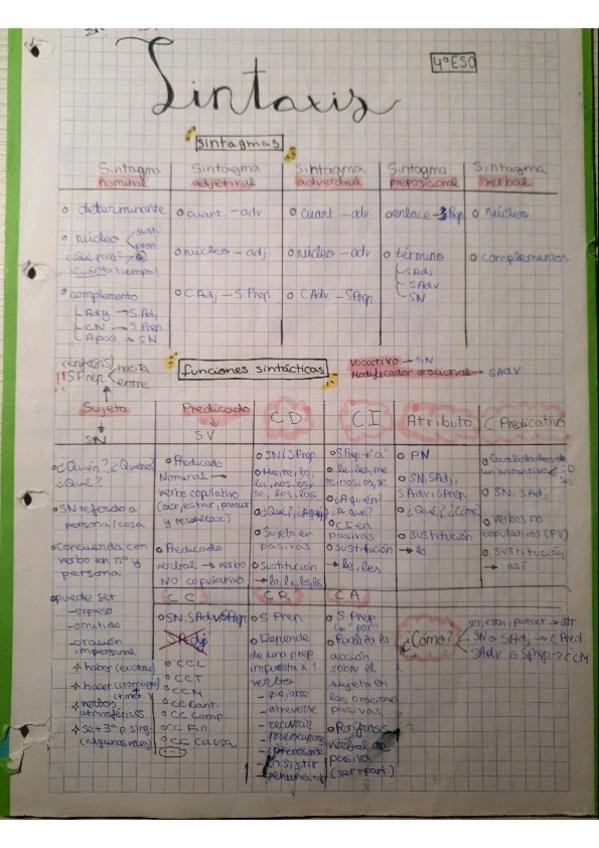 4º ESO
Sintaxis
sintagmas
Sintagma nominal
determinante
núcleo
sust.
pron
¿Cuánto tiempo?
complemento
Adj → S Adj
CN → S Prep.
Apos. → SN
Sintagma adjetival
cuant. - adv
núcleo - adj
C Adj - S Prep.
Sintagma adverbial
cuant. - adv
núcleo - adv
C Adv - S Prep
Sintagma preposicional
enlace → Prep
término
SAdj
SAdv
SN
Sintagma verbal
núcleo
complementos
funciones sintácticas
vocativo → SN
Modificador oracional → SAdv
(énfasis)
!! SPrep
hasta
entre
Sujeto
SN
¿Quién?, ¿Quiénes?
¿Qué?
SN referido a
persona/cosa
Concuerda con
verbo en nº y
persona
puede ser
- expreso
- omitido
- oración
impersonal
haber (existir)
hacer
verbos
atmosféricos
se + 3ª p. sing.
(algunas veces)
Predicado
SV
Predicado
Nominal →
verbo copulativo
(ser, estar, parecer
Predicado
verbal → verbo
NO copulativo
CD
SN / SPrep
Me, te, lo,
la, nos, os,
se, los, las
¿Qué?
Sujeto en
pasivas
Sustitución
→ lo, la, los, las
CI
SPrep → "a"
le, les, me
te, nos, os, se
¿A quién?
¿A qué?
CI en
pasivas
sustitución
→ le, les
Atributo
PN
SN, SAdj,
SAdv, SPrep
¿Qué?, ¿Cómo?
SUSTITUCIÓN
→ lo
C Predicativo
Cualidades de
SN, SAdj
verbos no
copulativos (PV)
SUSTITUCIÓN
→ así
CC
SN, SAdv, SPrep
SAdj
CCL
CCT
CCM
CC Cant.
CC Comp.
CC Fin.
CC Causa
CR
S Prep
Depende
de una prep
impuesta x 1
verbo
- quejarse
- atreverse
- recurrir
- preocuparse
- insistir
CA
S Prep
("por")
Realiza la
acción
sobre el
sujeto en
las oraciones
pasivas
Perífrasis
verbal de
pasiva
(ser + part.)
¿Cómo?
ser, estar, parecer → atr
SN o SAdj → C Pred.
SAdv o SPrep → CCM